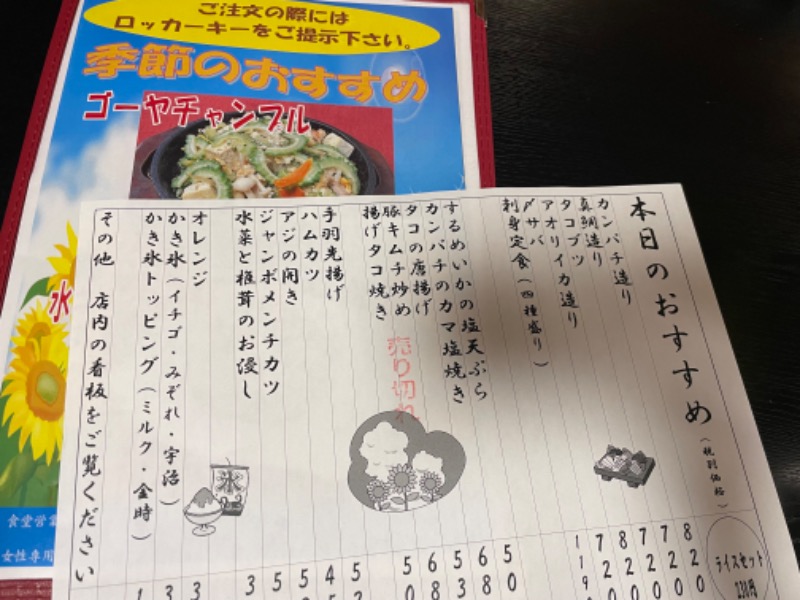 ご注文の際には
ロッカーキーをご提示下さい。
季節のおすすめ
ゴーヤチャンプル
氷
食堂営業
女性専用
本日のおすすめ(税別価格)
カンパチ造り
真鯛造り
タコブツ
アオリイカ造り
〆サバ
刺身定食(四種盛り)
するめいかの塩天ぷら
カンパチのカマ塩焼き
タコの唐揚げ
豚キムチ炒め
売り切れ
揚げタコ焼き
手羽先揚げ
ハムカツ
アジの開き
ジャンボメンチカツ
水菜と椎茸のお浸し
オレンジ
かき氷(イチゴ・みぞれ・宇治)
かき氷トッピング(ミルク・金時)
その他 店内の看板をご覧ください
氷
ライスセット
230円